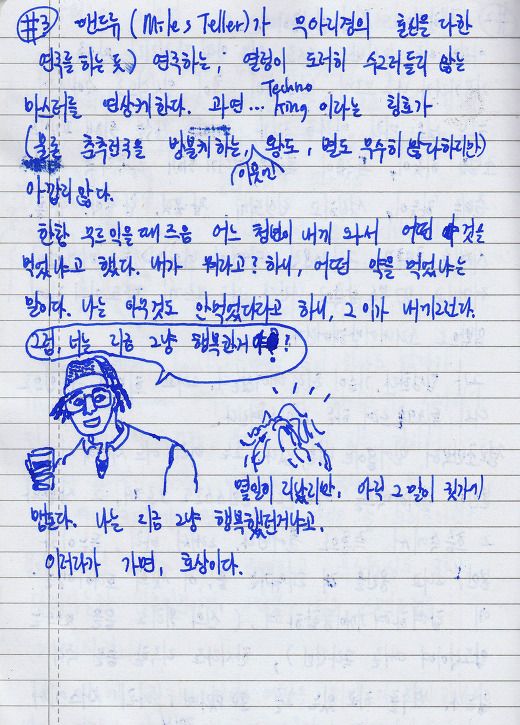 #3 앤드류 (Miles Teller)가 무아지경의 혼신을 다한
연극을 하는 듯) 연주하는, 열정이 도저히 수그러들지 않는
마스터를 연상케 한다. 과연... Techno King 이라는 칭호가
(물론 춘추전국을 방불케 하는, 이웃한 왕도, 별도 무수히 많다하지만)
아깝지 않다.
한창 무르익을 때 즈음 어느 청년이 내게 와서 어떤 것을
먹었냐고 했다. 내가 뭐라고? 하니, 어떤 약을 먹었냐는
말이다. 나는 아무것도 안먹었다라고 하니, 그 이가 내게 그런다.
그럼, 너는 지금 그냥 행복한거야?
몇일이 지났지만, 아직 그 말이 귓가에
맴돈다. 나는 지금 그냥 행복했던거냐고.
이러다가 가면, 호상이다.